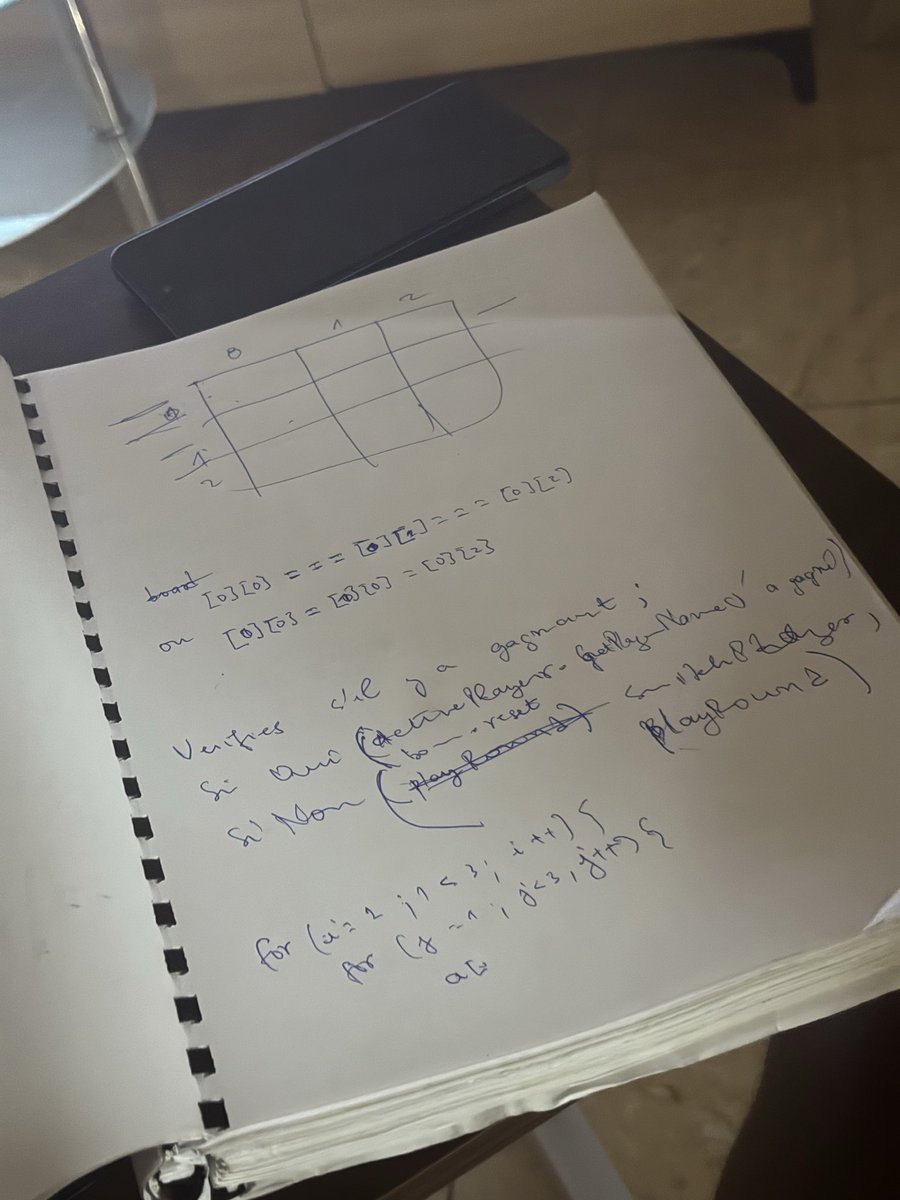 0 1 2
0
1
2
[0][0] === [0][1] === [0][2]
ou [0][0] = [0][0] = [0][2]
Verifies s'il y a gagnant ;
Si Oui (ActivePlayer. getPlayerName() a gagné)
.reset
Si Non ( switchPlayer,
playRound)
for (i= 1 ; i < 3 ; i++) {
for (j = 1 ; j<3, j++) {
a[